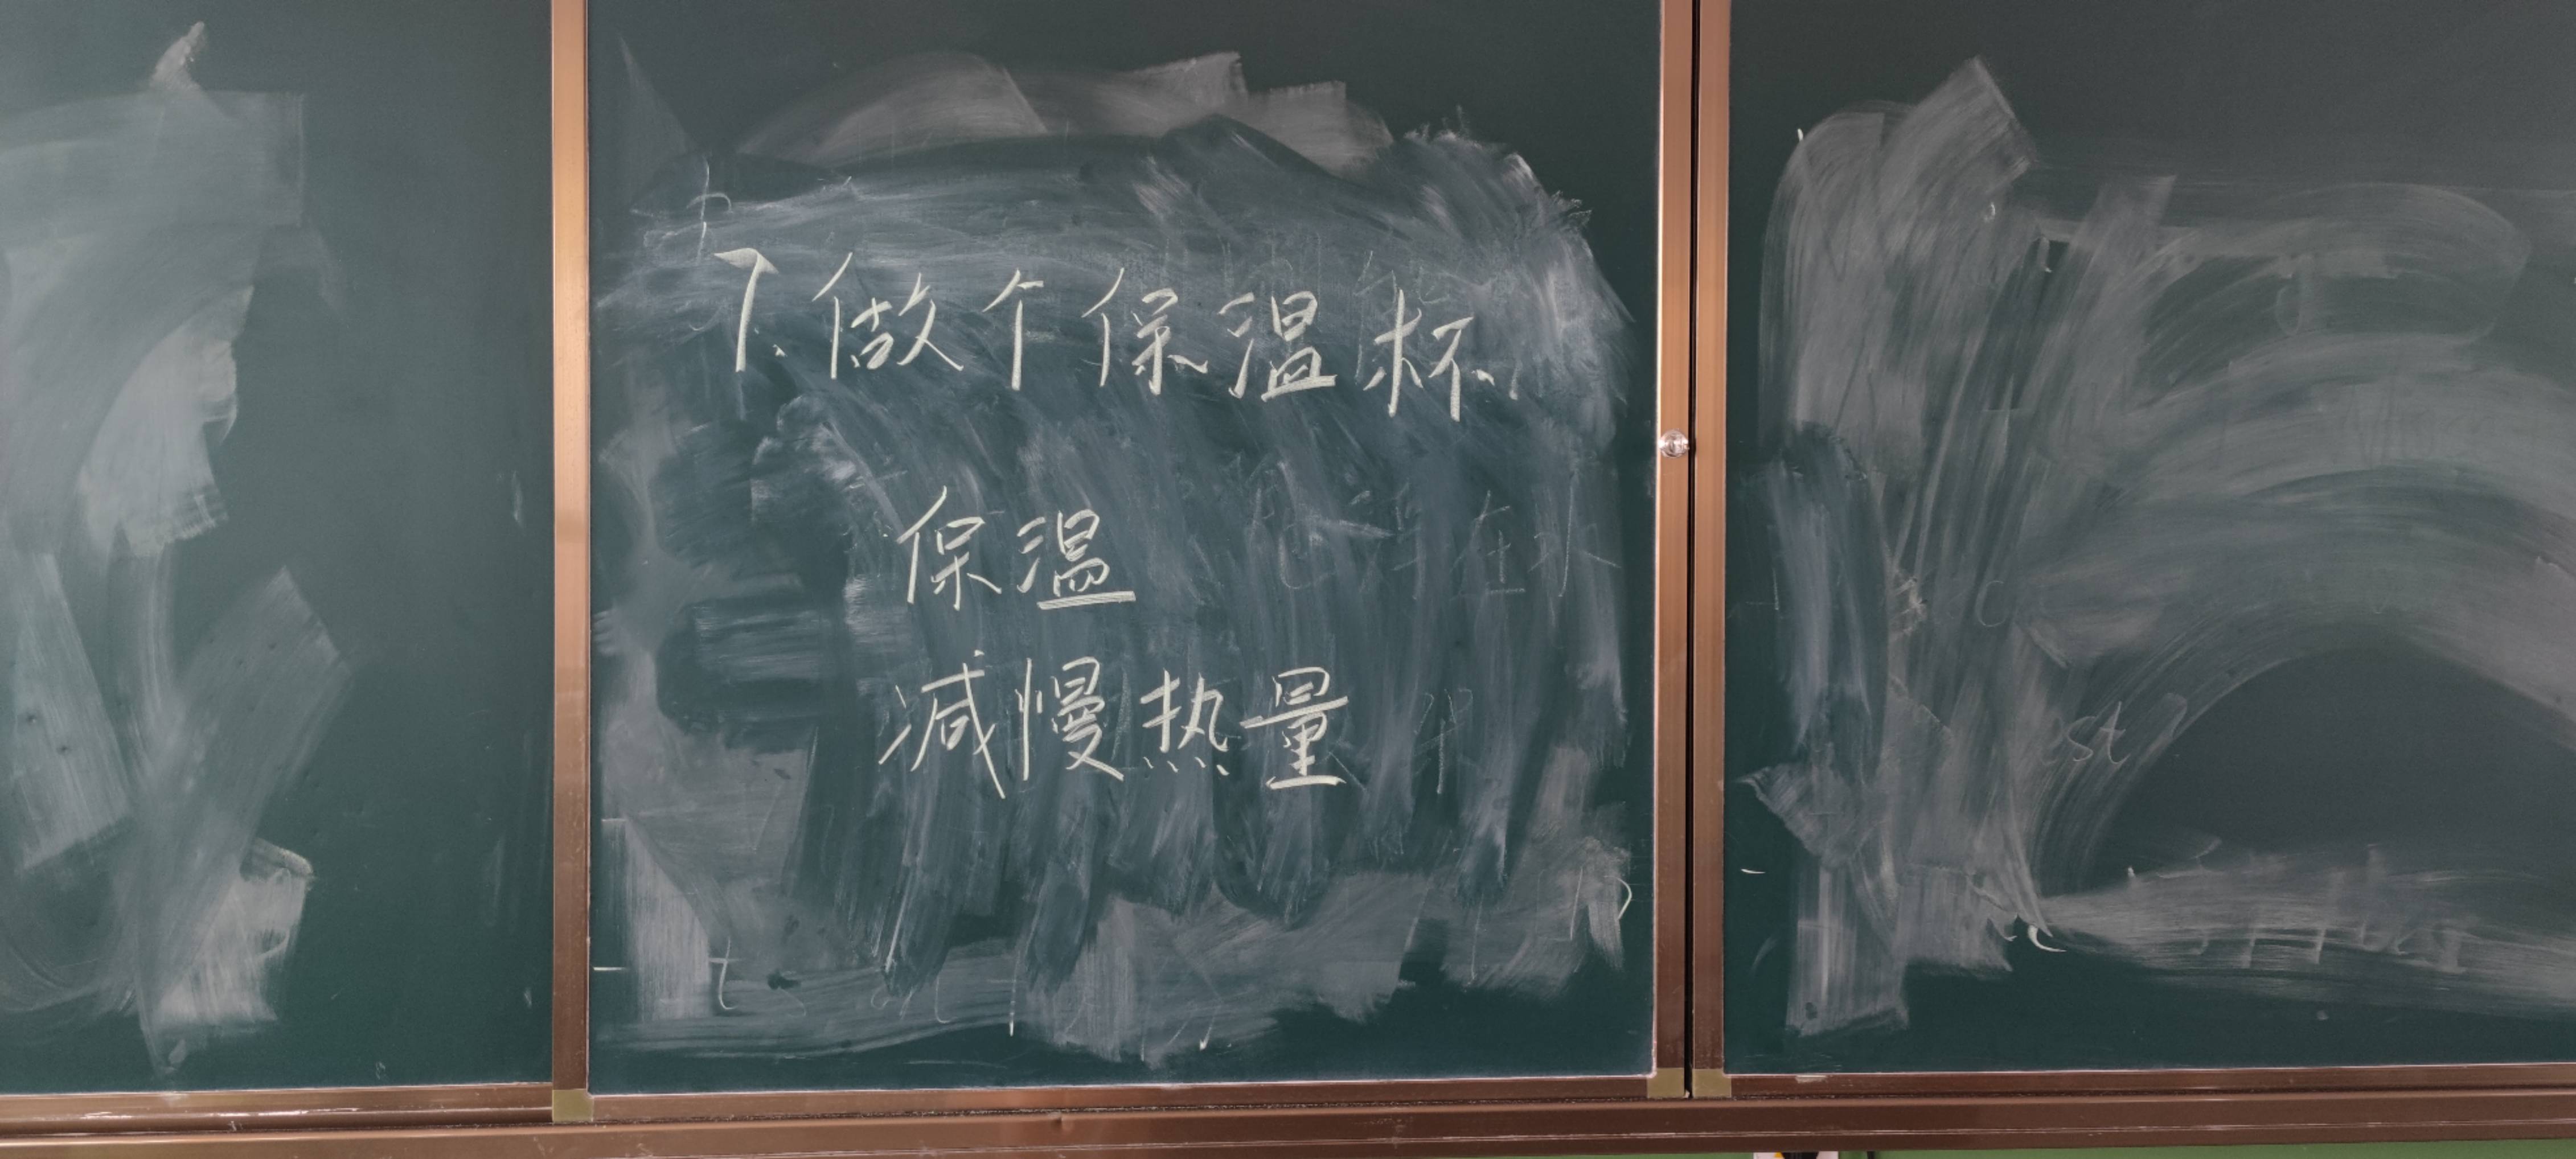 7.做个保温杯.
保温
减慢热量
est